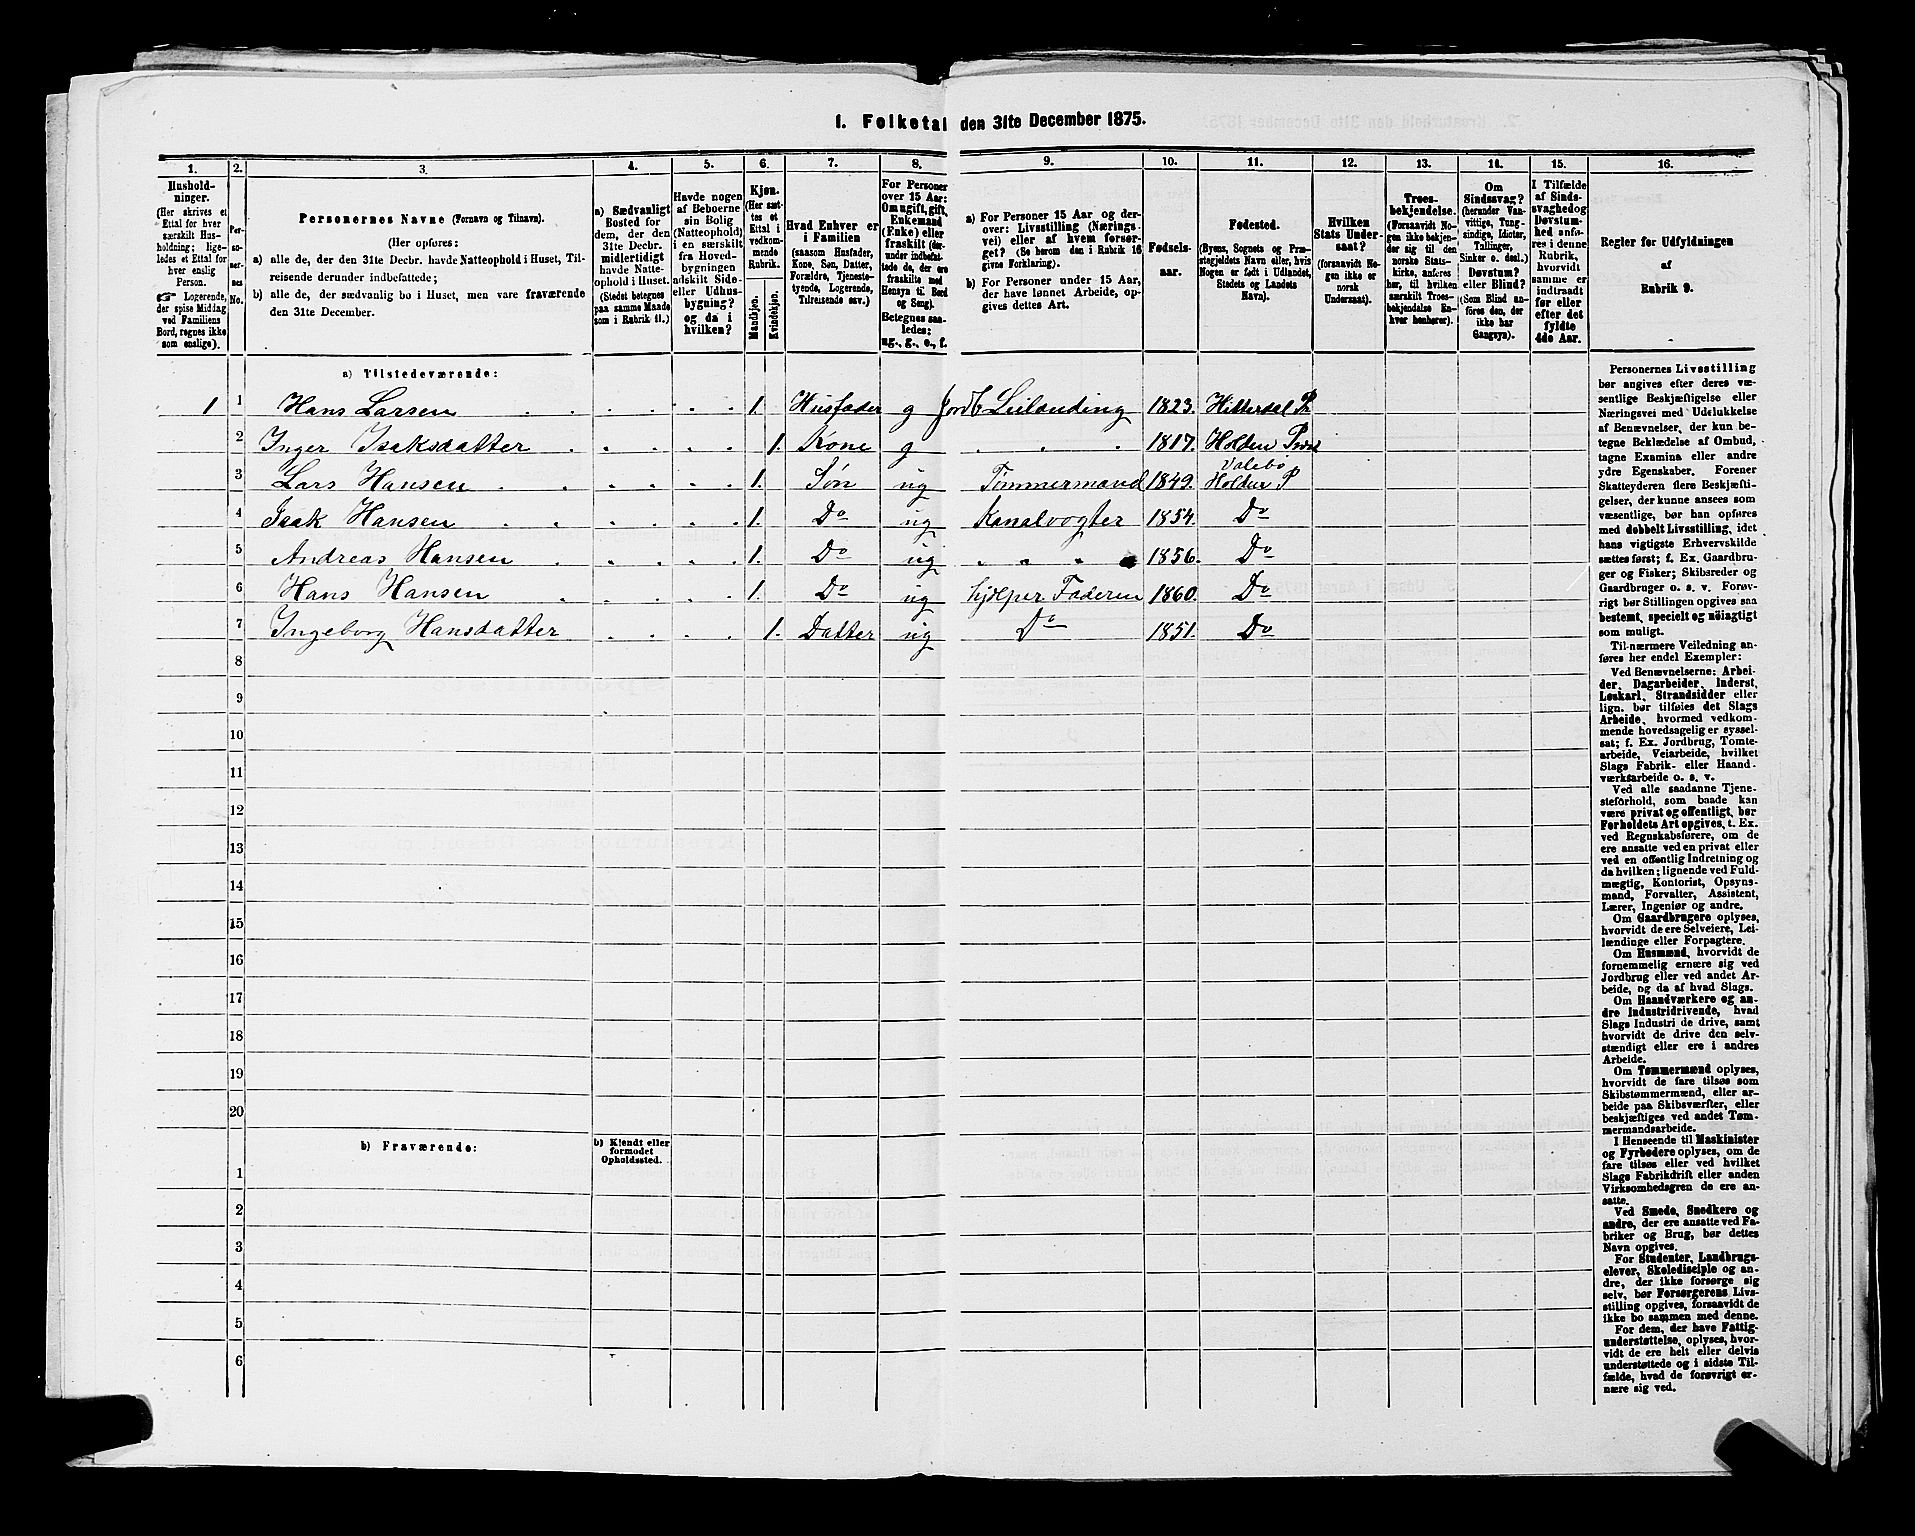 1. Folketal den 31te December 1875.
1. 2. 3. 4. 5. 6. 7. 8. 9. 10. 11. 12. 13. 14. 15. 16.
Hushold-
ninger.
(Her skrives et
Ettal for hver
særskilt Hus-
holdning; lige-
ledes et Ettal for
hver enslig
Person.
☞ Logerende,
der spise Middag
ved Familiens
Bord, regnes ikke
som enslige).
Per-
so-
ner-
nes
No.
Personernes Navne (Fornavn og Tilnavn).
(Her opføres:
a) alle de, der den 31te Decbr. havde Natteophold i Huset, Til-
reisende derunder indbefattede;
b) alle de, der sædvanlig bo i Huset, men vare fraværende
den 31te December.
a) Sædvanligt
Bosted for
dem, der den
31te Decbr.
midlertidigt
havde Natte-
ophold i Huset.
(Stedet betegnes
paa samme Maade
som i Rubrik 11.)
Havde nogen
af Beboerne
sin Bolig
(Natteophold)
i en særskilt
fra Hoved-
bygningen
adskilt Side-
eller Udhus-
bygning?
og da i
hvilken?
Kjøn.
(Her sæt-
tes et
Ettal i
vedkom-
mende
Rubrik.
Mandkjøn.
Kvindekjøn.
Hvad Enhver er
i Familien
(saasom Husfader,
Kone, Søn, Datter,
Forældre, Tjeneste-
tyende, Logerende,
Tilreisende osv.)
For Personer
over 15 Aar:
Om ugift, gift,
Enkemand
(Enke) eller
fraskilt (der-
under indbefat-
tede de, der ere
fraskilte med
Hensyn til Bord
og Seng).
Betegnes saa-
ledes:
ug., g., e., f.
a) For Personer 15 Aar og der-
over: Livsstilling (Nærings-
vei) eller af hvem forsør-
get? (Se herom den i Rubrik 16
givne Forklaring).
b) For Personer under 15 Aar,
der have lønnet Arbeide, op-
gives dettes Art.
Fødsels-
aar.
Fødested.
(Byens, Sognets og Præ-
stegjeldets Navn eller, hvis
Nogen er født i Udlandet,
Stedets og Landets
Navn).
Hvilken
Stats Under-
saat?
(forsaavidt No-
gen ikke er
norsk
Undersaat).
Troes-
bekjendelse.
(Forsaavidt No-
gen ikke bekjen-
der sig til den
norske Stats-
kirke, anføres
her, til hvilken
særskilt Troes-
bekjendelse En-
hver henhører).
Om
Sindssvag?
(herunder Van-
vittige, Tung-
sindige, Idioter,
Tullinger,
Sinker o. desl.)
Døvstum?
eller Blind?
(Som Blind an-
føres den, der
ikke har
Gangsyn).
I Tilfælde
af Sinds-
svaghed og
Døvstum-
hed anfø-
res i denne
Rubrik,
hvorvidt
samme er
indtraadt
før eller
efter det
fyldte
4de Aar.
Regler for Udfyldningen
af
Rubrik 9.
a) Tilstedeværende:
1 1 Hans Larsen 1. Husfader g Jordb Leilænding 1823. Hitterdal Pr
2 Inger Isaksdatter 1. Kone g 1817. Holden
3 Lars Hansen 1. Søn ug Tømmermand 1849. Valebø Holden P
4 Isak Hansen 1. Do ug Kanalvogter 1854. Do
5 Andreas Hansen 1. Do ug " " " 1856. Do
6 Hans Hansen 1. Do ug hjelper Faderen 1860. Do
7 Ingeborg Hansdatter 1. Datter ug Do 1851. Do
8
9
10
11
12
13
14
15
16
17
18
19
20
b) Fraværende:
b) Kjendt eller
formodet
Opholdssted.
1
2
3
4
5
6
Personernes Livsstilling
bør angives efter deres væ-
sentlige Beskjæftigelse eller
Næringsvei med Udelukkelse
af Benævnelser, der kun be-
tegne Beklædelse af Ombud,
tagne Examina eller andre
ydre Egenskaber. Forener
Skatteyderen flere Beskjæfti-
gelser, der kunne ansees som
væsentlige, bør han opføres
med dobbelt Livsstilling, idet
hans vigtigste Erhvervskilde
sættes først; f. Ex. Gaardbru-
ger og Fisker; Skibsreder og
Gaardbruger o. s. v. Forøv-
rigt bør Stillingen opgives saa
bestemt, specielt og nöiagtigt
som muligt.
Til nærmere Veiledning an-
føres her endel Exempler:
Ved Benævnelserne: Arbei-
der, Dagarbeider, Inderst,
Løskarl, Strandsidder eller
lign. bør tilføies det Slags
Arbeide, hvormed vedkom-
mende hovedsagelig er syssel-
sat; f. Ex. Jordbrug, Tomte-
arbeide, Veiarbeide, hvilket
Slags Fabrik- eller Haand-
værksarbeide o. s. v.
Ved alle saadanne Tjene-
steforhold, som baade kan
være privat og offentligt, bør
Forholdets Art opgives, t. Ex.
ved Regnskabsførere, om de
ere ansatte ved en privat eller
ved en offentlig Indretning og
da hvilken; lignende ved Fuld-
mægtig, Kontorist, Opsyns-
mand, Forvalter, Assistent,
Lærer, Ingeniør og andre.
Om Gaardbrugere oplyses,
hvorvidt de ere Selveiere, Lei-
lændinge eller Forpagtere.
Om Husmænd, hvorvidt de
fornemmelig ernære sig ved
Jordbrug eller ved andet Ar-
beide, og da af hvad Slags.
Om Haandværkere og an-
dre Industridrivende, hvad
Slags Industri de drive, samt
hvorvidt de drive den selv-
stændigt eller ere i andres
Arbeide.
Om Tømmermænd oplyses,
hvorvidt de fare tilsøs som
Skibstømmermænd, eller ar-
beide paa Skibsværfter, eller
beskjæftiges ved andet Tøm-
mermandsarbeide.
I Henseende til Maskinister
og Fyrbødere oplyses, om de
fare tilsøs eller ved hvilket
Slags Fabrikdrift eller anden
Virksomhedsgren de ere an-
satte.
Ved Smede, Snedkere og
andre, der ere ansatte ved Fa-
briker og Brug, bør dettes
Navn opgives.
For Studenter, Landbrugs-
elever, Skoledisciple og an-
dre, der ikke forsørge sig
selv, bør Forsørgerens Livs-
stilling opgives, forsaavidt de
ikke bo sammen med denne.
For dem, der have Fattig-
understøttelse, oplyses, hvor-
vidt de ere helt eller delvis
understøttede og i sidste Til-
fælde, hvad de forøvrigt er-
nære sig ved.